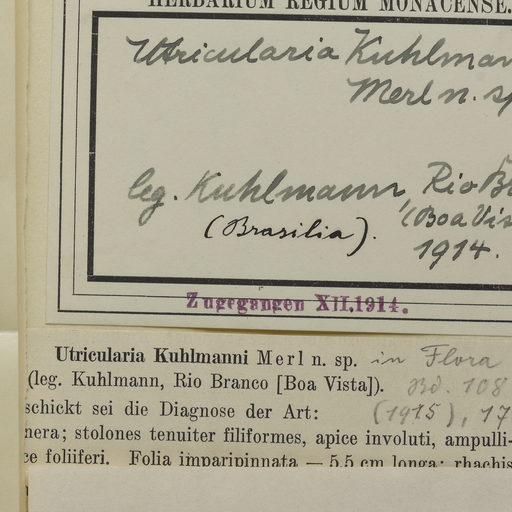 HERBARIUM REGIUM MONACENSE.
Utricularia Kuhlman
Merl n. sp
leg. Kuhlmann, Rio B
(Boa Vis
(Brasilia). 1914.
Zugegangen XII.1914.
Utricularia Kuhlmanni Merl n. sp. in Flora
(leg. Kuhlmann, Rio Branco [Boa Vista]). Bd. 108
schickt sei die Diagnose der Art: (1915), 17
nera; stolones tenuiter filiformes, apice involuti, ampulli-
ce foliiferi. Folia imparipinnata — 5,5 cm longa; rhachis